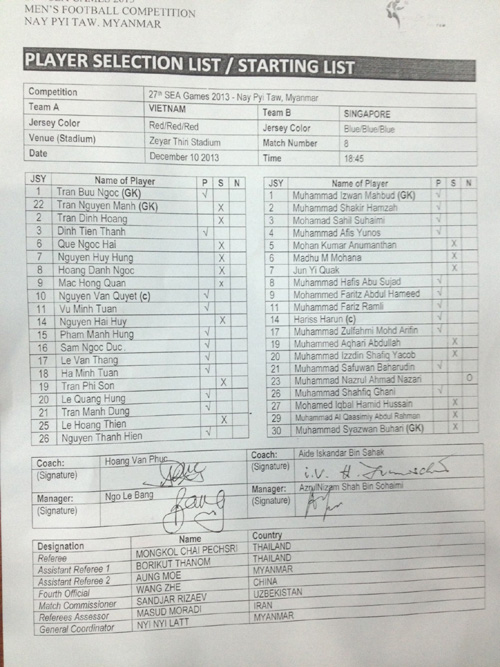 MEN'S FOOTBALL COMPETITION
NAY PYI TAW, MYANMAR
PLAYER SELECTION LIST / STARTING LIST
Competition 27th SEA Games 2013 - Nay Pyi Taw, Myanmar
Team A VIETNAM Team B SINGAPORE
Jersey Color Red/Red/Red Jersey Color Blue/Blue/Blue
Venue (Stadium) Zeyar Thiri Stadium Match Number 8
Date December 10 2013 Time 18:45
JSY Name of Player P S N
1 Tran Buu Ngoc (GK) √
22 Tran Nguyen Manh (GK) X
2 Tran Dinh Hoang X
3 Dinh Tien Thanh √
6 Que Ngoc Hai X
7 Nguyen Huy Hung X
8 Hoang Danh Ngoc X
9 Mac Hong Quan x
10 Nguyen Van Quyet (c) √
11 Vu Minh Tuan √
14 Nguyen Hai Huy X
15 Pham Manh Hung √
16 Sam Ngoc Duc √
17 Le Van Thang √
18 Ha Minh Tuan √
19 Tran Phi Son X
20 Le Quang Hung √
21 Tran Manh Dung √
25 Le Hoang Thien X
26 Nguyen Thanh Hien √
JSY Name of Player P S N
1 Muhammad Izwan Mahbud (GK) √
2 Muhammad Shakir Hamzah √
3 Mohamad Sahil Suhaimi √
4 Muhammad Afis Yunos √
5 Mohan Kumar Anumanthan X
6 Madhu M Mohana X
7 Jun Yi Quak X
8 Muhammad Hafis Abu Sujad √
9 Mohammed Faritz Abdul Hameed √
11 Muhammad Fariz Ramli √
14 Hariss Harun (c) √
17 Muhammad Zulfahmi Mohd Arifin √
19 Muhammad Aqhari Abdullah X
20 Muhammad Izzdin Shafiq Yacob X
21 Muhammad Safuwan Baharudin √
23 Muhammad Nazrul Ahmad Nazari O
26 Muhammad Shahfiq Ghani √
27 Mohamed Iqbal Hamid Hussain X
29 Muhammad Al Qaasimiy Abdul Rahman X
30 Muhammad Syazwan Buhari (GK) X
Coach: Hoang Van Phuc Coach: Aide Iskandar Bin Sahak
(Signature) (Signature) i.v.
Manager: Ngo Le Bang Manager: AzrulNizam Shah Bin Sohaimi
(Signature) (Signature)
Designation Name Country
Referee MONGKOL CHAI PECHSRI THAILAND
Assistant Referee 1 BORIKUT THANOM THAILAND
Assistant Referee 2 AUNG MOE MYANMAR
Fourth Official WANG ZHE CHINA
Match Commissioner SANDJAR RIZAEV UZBEKISTAN
Referees Assessor MASUD MORADI IRAN
General Coordinator NYI NYI LATT MYANMAR